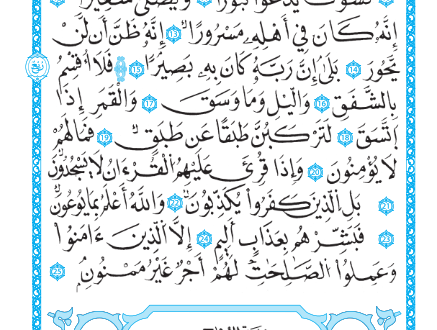 إِنَّهُۥ كَانَ فِىٓ أَهْلِهِۦ مَسْرُورًا ١٣ إِنَّهُۥ ظَنَّ أَن لَّن
يَحُورَ ١٤ بَلَىٰٓ إِنَّ رَبَّهُۥ كَانَ بِهِۦ بَصِيرًا ١٥ فَلَآ أُقْسِمُ
بِٱلشَّفَقِ ١٦ وَٱلَّيْلِ وَمَا وَسَقَ ١٧ وَٱلْقَمَرِ إِذَا
ٱتَّسَقَ ١٨ لَتَرْكَبُنَّ طَبَقًا عَن طَبَقٍ ١٩ فَمَا لَهُمْ
لَا يُؤْمِنُونَ ٢٠ وَإِذَا قُرِئَ عَلَيْهِمُ ٱلْقُرْءَانُ لَا يَسْجُدُونَ
٢١ بَلِ ٱلَّذِينَ كَفَرُوا۟ يُكَذِّبُونَ ٢٢ وَٱللَّهُ أَعْلَمُ بِمَا يُوعُونَ
٢٣ فَبَشِّرْهُم بِعَذَابٍ أَلِيمٍ ٢٤ إِلَّا ٱلَّذِينَ ءَامَنُوا۟
وَعَمِلُوا۟ ٱلصَّٰلِحَٰتِ لَهُمْ أَجْرٌ غَيْرُ مَمْنُونٍۭ ٢٥